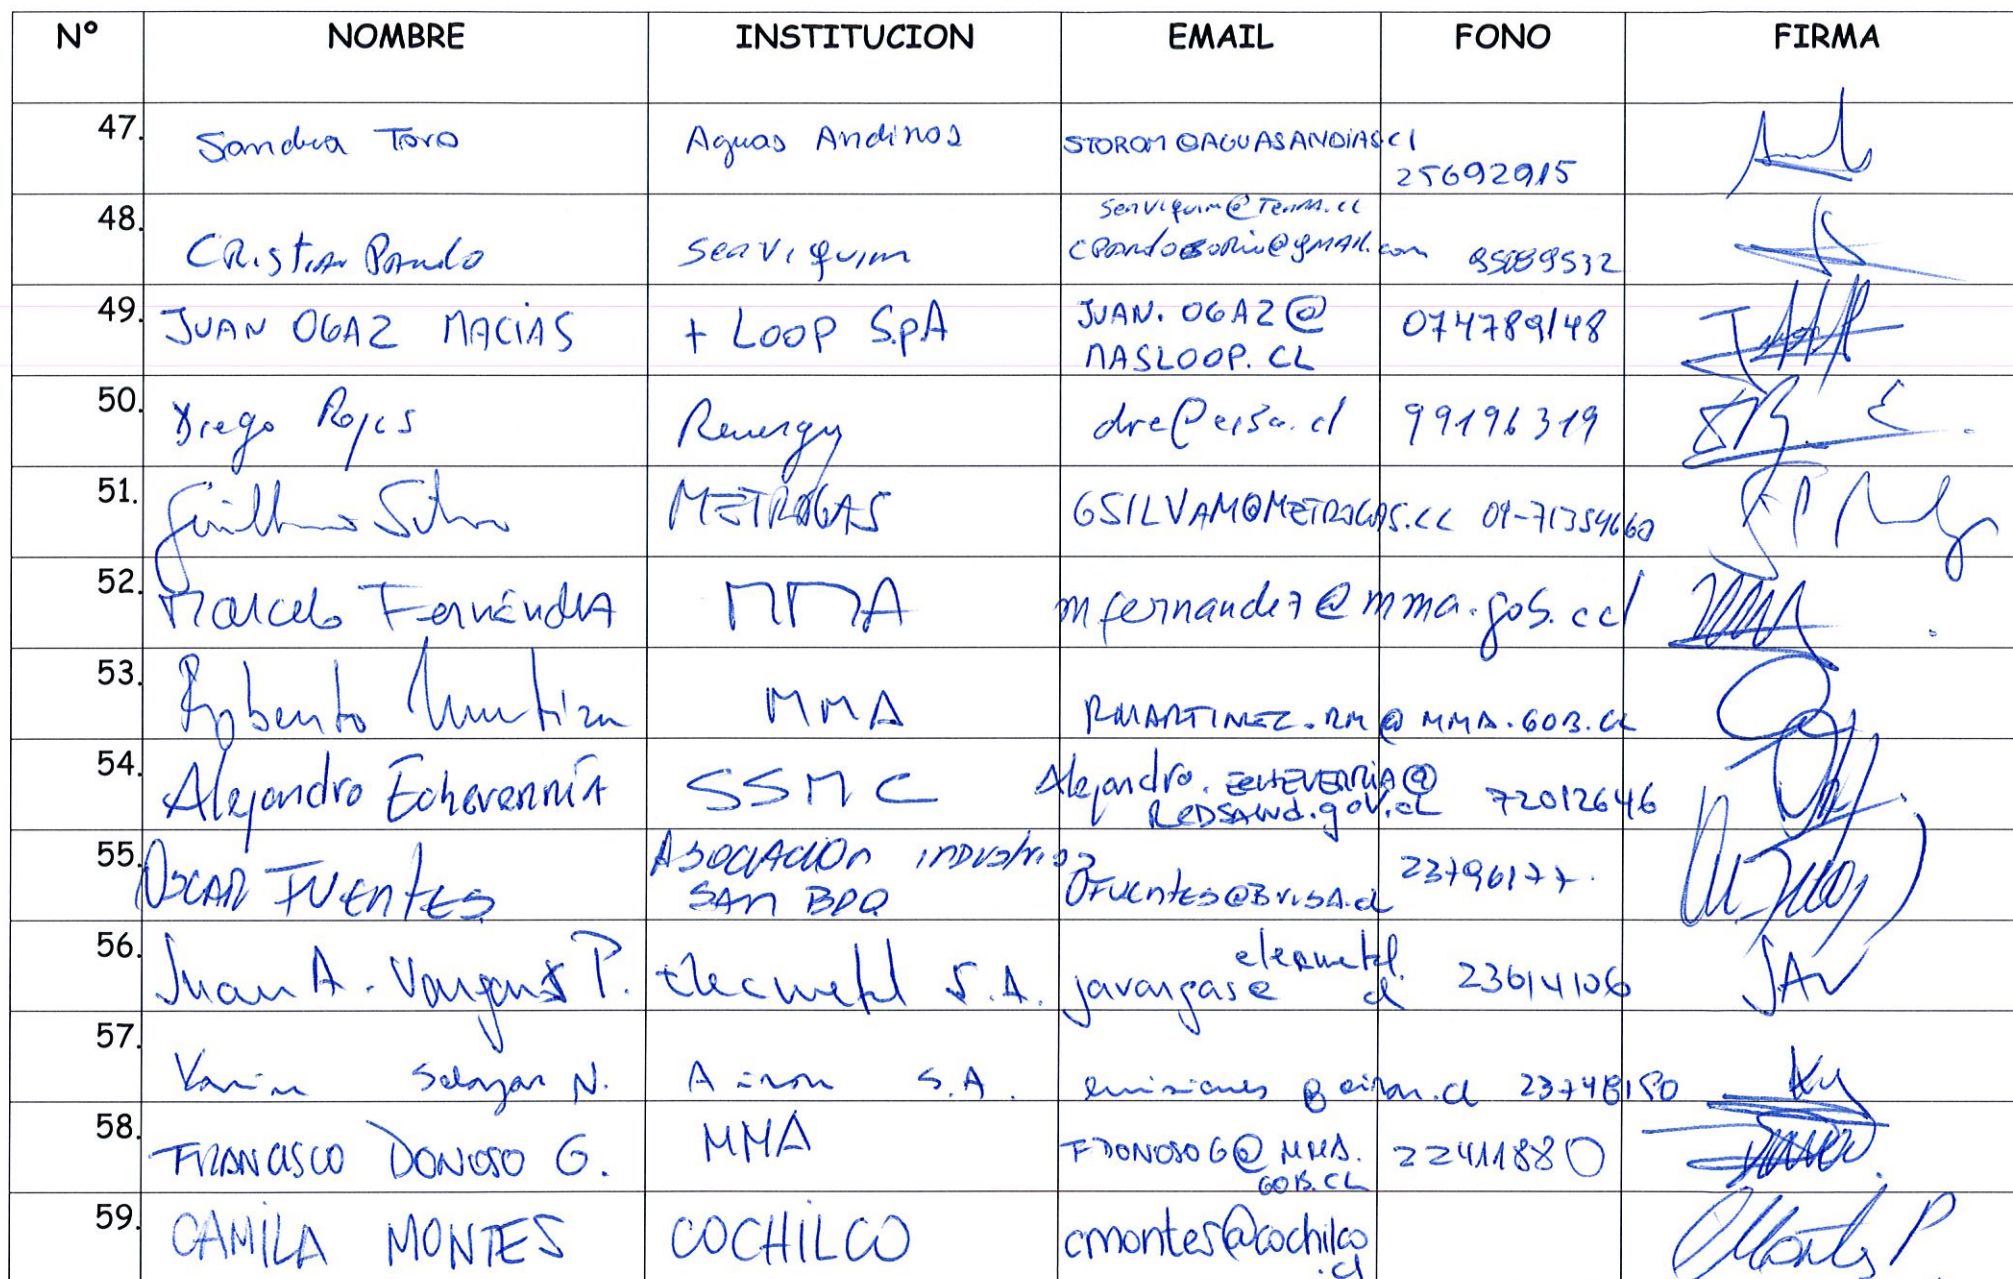 Nº NOMBRE INSTITUCION EMAIL FONO FIRMA
47. Sandra Toro Aguas Andinas STOROM@AGUASANDIAS.Cl 25692915
48. CRistian Pardo Serviquim Serviquim@Terra.cl
@gmail.com
49. JUAN OGAZ MACIAS + LOOP S.pA JUAN.OGAZ@ 074789148
MASLOOP.CL
50. Diego Rojas Renergy 99196319
51. Guillermo Silva METROGAS GSILVAM@METROGAS.CL 09-71354660
52. Marcelo Fernández MMA mfernandez@mma.gob.cl
53. Roberto Martinez MMA RMARTINEZ.RM@MMA.GOB.CL
54. Alejandro Echeverría SSMC Alejandro.ECHEVERRIA@
REDSALUD.gov.CL 72012646
55. OSCAR FUENTES ASOCIACION industrial 23796177.
SAN BDO OFUENTES@BVISA.cl
56. Juan A. Vargas P. Elecmetal S.A. javargas@ elecmetal.cl 23614106 JAV
57. Karin Salazar N. Airon S.A. emisiones@airon.cl 23748150
58. FRANCISCO DONOSO G. MMA FDONOSOG@MMA. 22411880
GOB.CL
59. CAMILA MONTES COCHILCO cmontes@cochilco
.cl